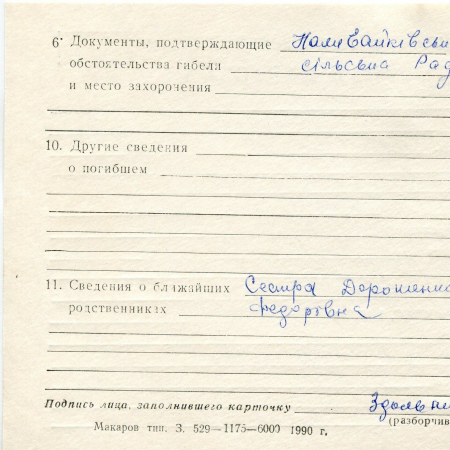 6· Документы, подтверждающие Наливайківськ
обстоятельства гибели сільська Рад
и место захоронения
10. Другие сведения
о погибшем
11. Сведения о ближайших Сестра Дорошенко
родственниках Федорівна
Подпись лица, заполнившего карточку
(разборчив
Макаров тип. З. 529—1175—6000 1990 г.